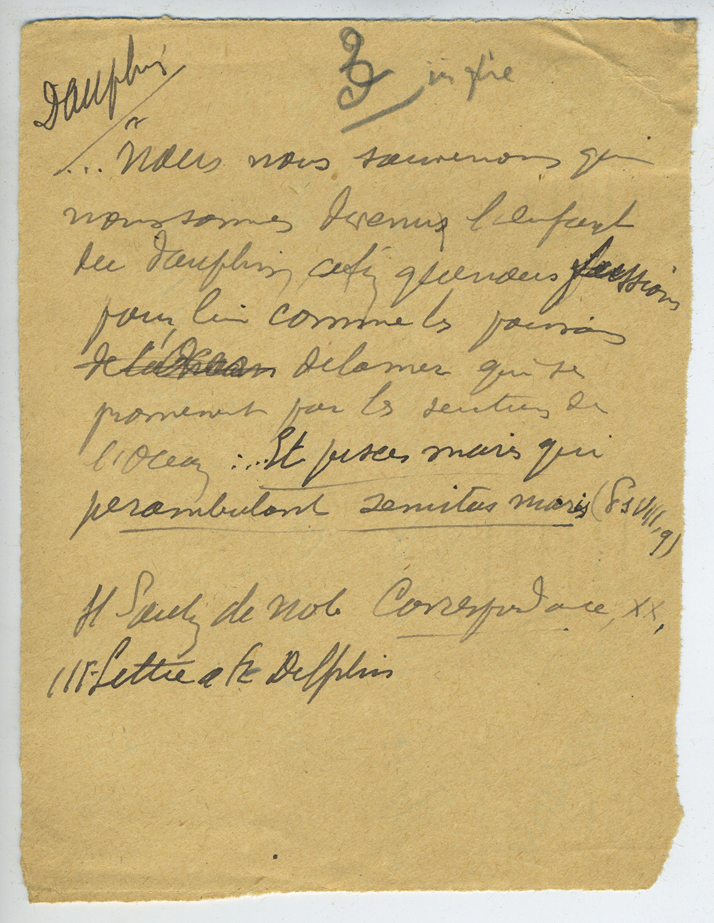 Dauphin
3 in fire
... Nous nous souvenons que
nous sommes devenus l'enfant
du dauphin, afin que nous fussions
pour lui comme les poissons
de l'Ocean de la mer qui se
promenent par les sentiers de
l'Ocean : ... Et pisces maris qui
perambulant semitas maris (Ps VIII, 9)
St Paulin de Nole Correspondance, XX,
IIIe Lettre a St Delphin